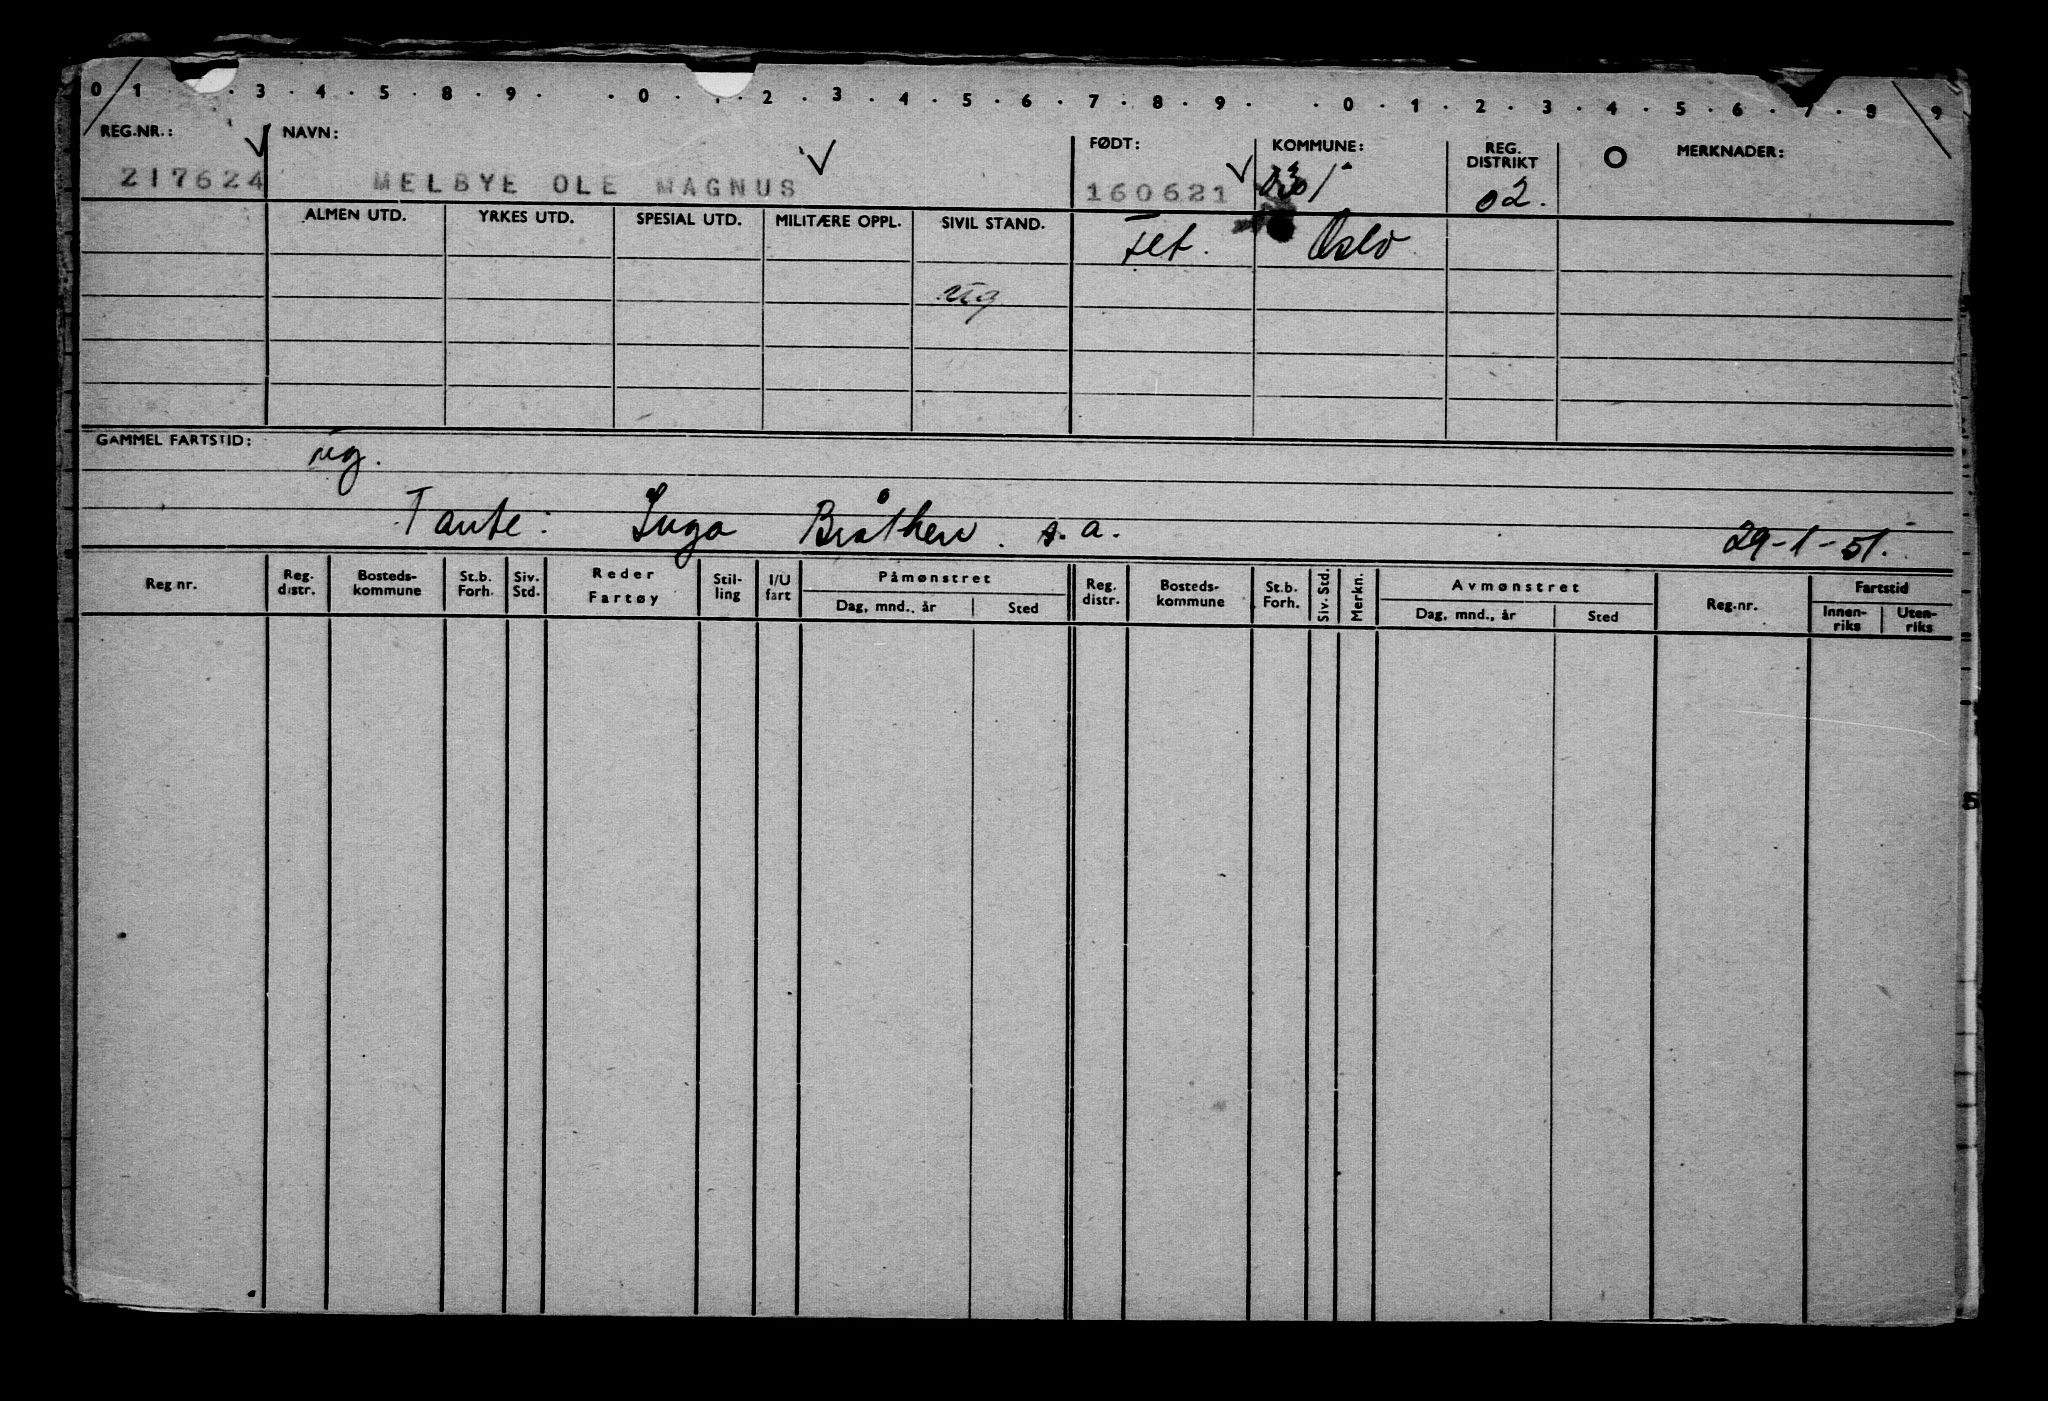 0 1 . 3 . 4 . 5 . 8 . 9 . . 0 . . 2 . 3 . 4 . 5 . 6 . 7 . 8 . 9 . . 0 . 1 . 2 . 3 . 4 . 5 . 6 . 7 . 8 . 9
REG.NR.: NAVN: FØDT: KOMMUNE: REG. DISTRIKT MERKNADER:
217624 MELBYE OLE MAGNUS 160621 02.
ALMEN UTD. YRKES UTD. SPESIAL UTD. MILITÆRE OPPL. SIVIL STAND. Fet. Oslo
ug
GAMMEL FARTSTID: ug.
Tante: Inga Bråthen. s.a. 29-1-51.
Reg nr. Reg. distr. Bosteds-kommune St.b. Forh. Siv. Std. Reder Fartøy Stil-ling I/U fart Påmønstret Reg. distr. Bosteds-kommune St.b. Forh. Siv. Std. Merkn. Avmønstret Reg.nr. Fartstid
Dag, mnd., år Sted Dag, mnd., år Sted Innen-riks Uten-riks